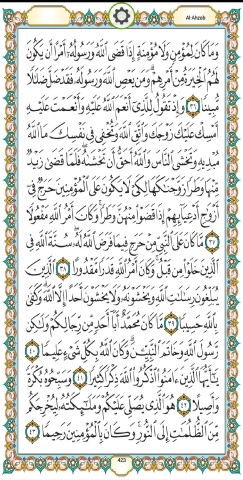 Al Ahzab
وَمَا كَانَ لِمُؤْمِنٍ وَلَا مُؤْمِنَةٍ إِذَا قَضَى اللَّهُ وَرَسُولُهُ أَمْرًا أَن يَكُونَ
لَهُمُ الْخِيَرَةُ مِنْ أَمْرِهِمْ وَمَن يَعْصِ اللَّهَ وَرَسُولَهُ فَقَدْ ضَلَّ ضَلَالًا
مُّبِينًا ٣٦ وَإِذْ تَقُولُ لِلَّذِي أَنْعَمَ اللَّهُ عَلَيْهِ وَأَنْعَمْتَ عَلَيْهِ
أَمْسِكْ عَلَيْكَ زَوْجَكَ وَاتَّقِ اللَّهَ وَتُخْفِي فِي نَفْسِكَ مَا اللَّهُ
مُبْدِيهِ وَتَخْشَى النَّاسَ وَاللَّهُ أَحَقُّ أَن تَخْشَاهُ فَلَمَّا قَضَى زَيْدٌ
مِّنْهَا وَطَرًا زَوَّجْنَاكَهَا لِكَيْ لَا يَكُونَ عَلَى الْمُؤْمِنِينَ حَرَجٌ فِي
أَزْوَاجِ أَدْعِيَائِهِمْ إِذَا قَضَوْا مِنْهُنَّ وَطَرًا وَكَانَ أَمْرُ اللَّهِ مَفْعُولًا
٣٧ مَّا كَانَ عَلَى النَّبِيِّ مِنْ حَرَجٍ فِيمَا فَرَضَ اللَّهُ لَهُ سُنَّةَ اللَّهِ فِي
الَّذِينَ خَلَوْا مِن قَبْلُ وَكَانَ أَمْرُ اللَّهِ قَدَرًا مَّقْدُورًا ٣٨ الَّذِينَ
يُبَلِّغُونَ رِسَالَاتِ اللَّهِ وَيَخْشَوْنَهُ وَلَا يَخْشَوْنَ أَحَدًا إِلَّا اللَّهَ وَكَفَى
بِاللَّهِ حَسِيبًا ٣٩ مَّا كَانَ مُحَمَّدٌ أَبَا أَحَدٍ مِّن رِّجَالِكُمْ وَلَٰكِن
رَّسُولَ اللَّهِ وَخَاتَمَ النَّبِيِّينَ وَكَانَ اللَّهُ بِكُلِّ شَيْءٍ عَلِيمًا ٤٠
يَا أَيُّهَا الَّذِينَ آمَنُوا اذْكُرُوا اللَّهَ ذِكْرًا كَثِيرًا ٤١ وَسَبِّحُوهُ بُكْرَةً
وَأَصِيلًا ٤٢ هُوَ الَّذِي يُصَلِّي عَلَيْكُمْ وَمَلَائِكَتُهُ لِيُخْرِجَكُم
مِّنَ الظُّلُمَاتِ إِلَى النُّورِ وَكَانَ بِالْمُؤْمِنِينَ رَحِيمًا ٤٣
423